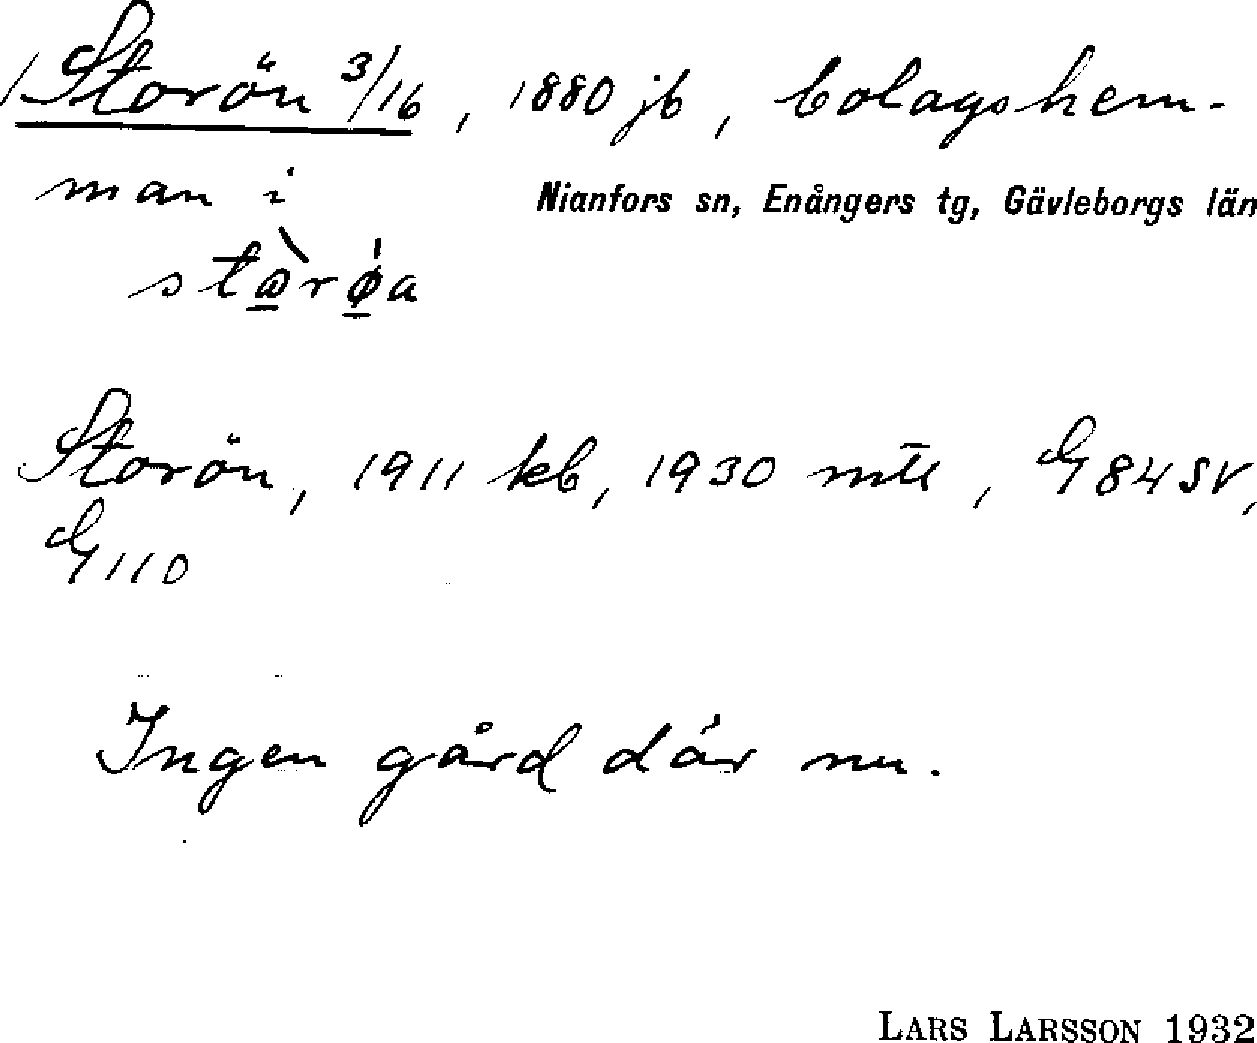 Storön 3/16, 1880 jb, bolagshem-
man i Nianfors sn, Enångers tg, Gävleborgs län
Storön, 1911 kb, 1930 mtl, G 84 SV,
G 110
Ingen gård där nu.
LARS LARSSON 1932